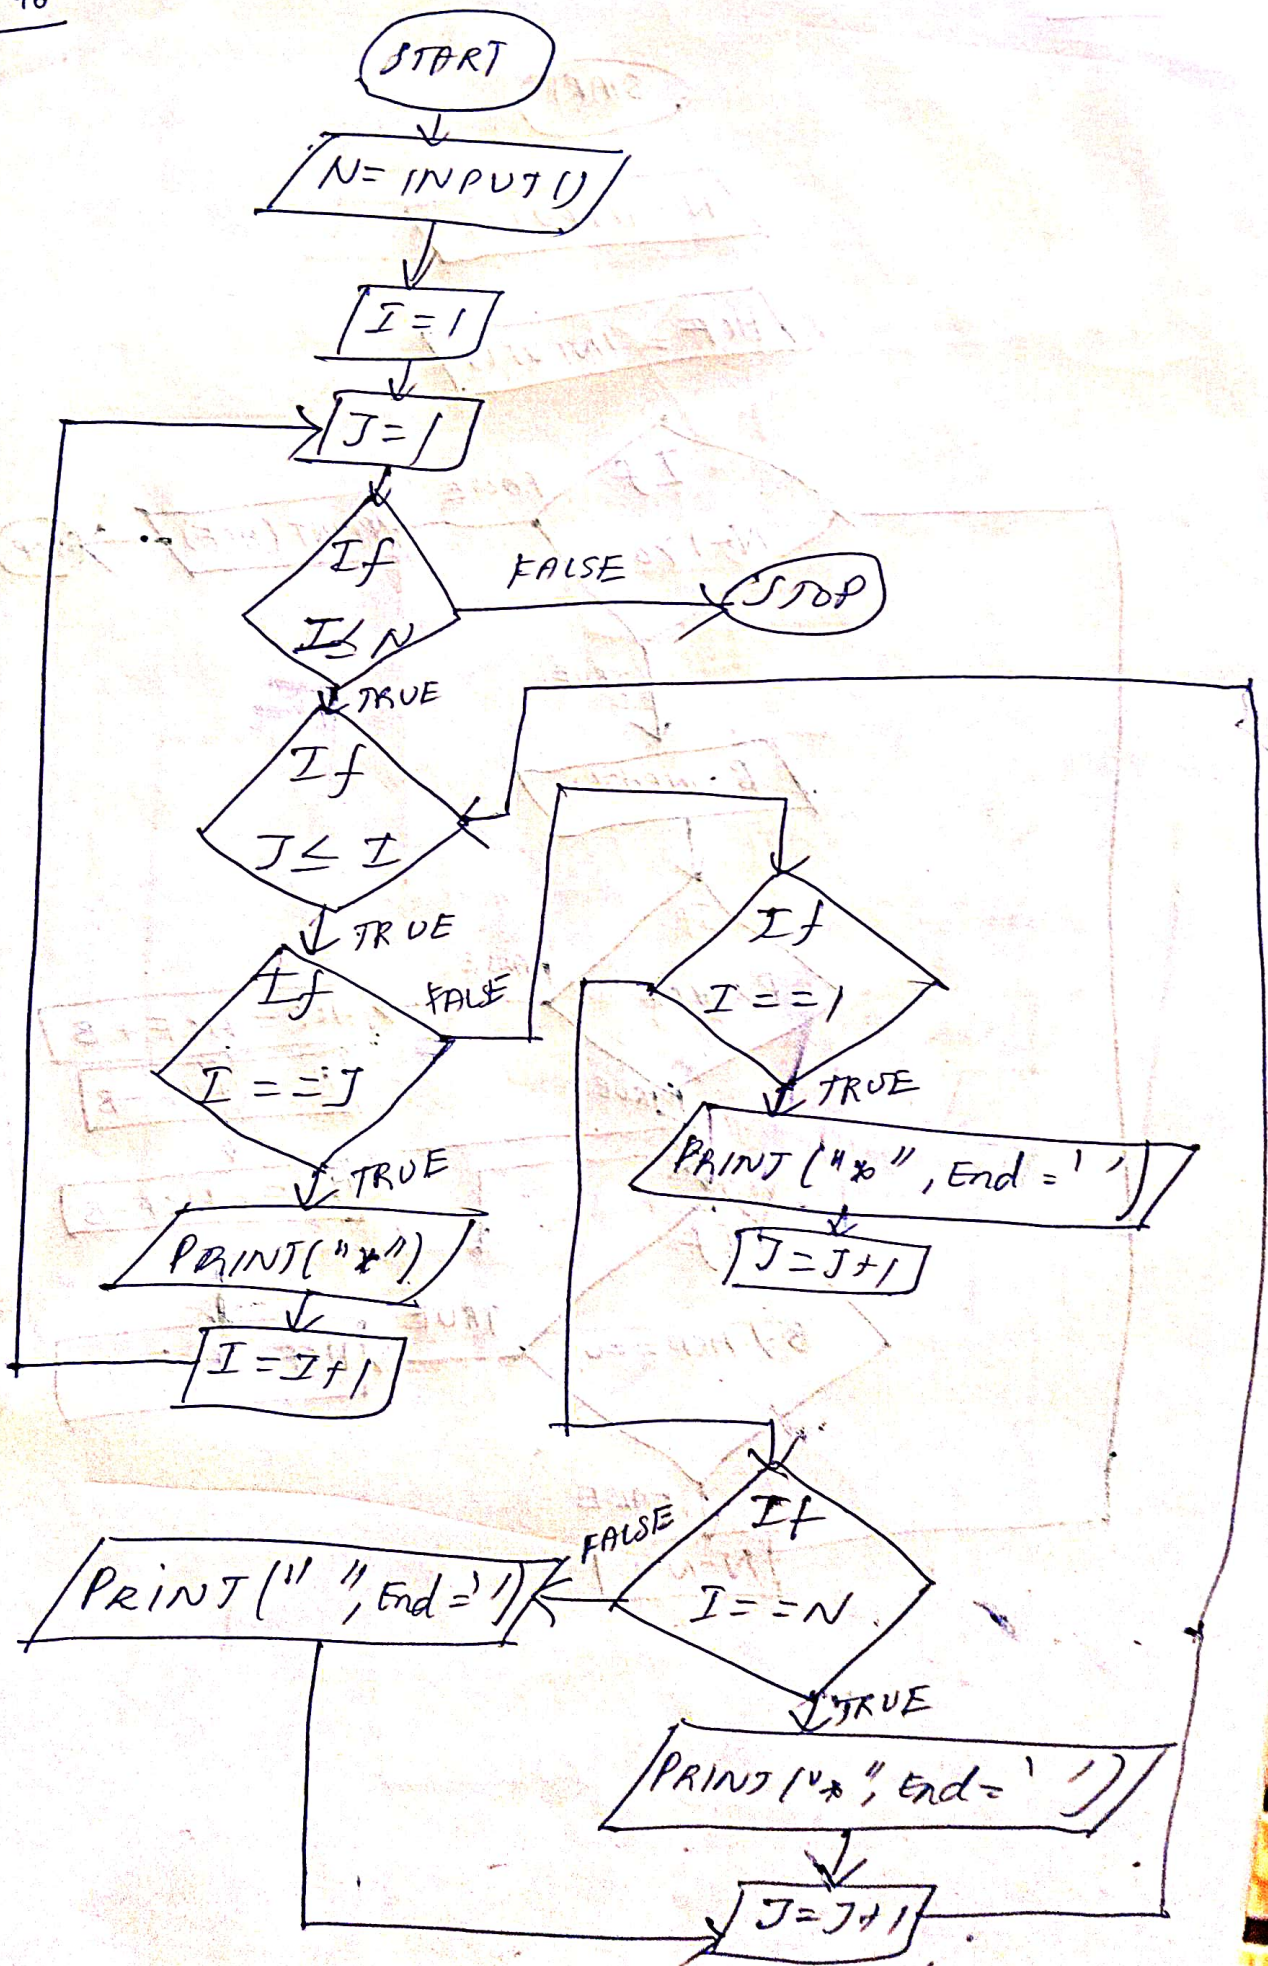 START
N= INPUT()
I = 1
J = 1
If
I ≤ N
FALSE
STOP
TRUE
If
J ≤ I
TRUE
If
I == J
FALSE
If
I == 1
TRUE
PRINT("*", End = ' ')
J = J+1
TRUE
PRINT("*")
I = I+1
If
I == N
FALSE
PRINT(" ", End = ' ')
TRUE
PRINT("*", End = ' ')
J = J+1